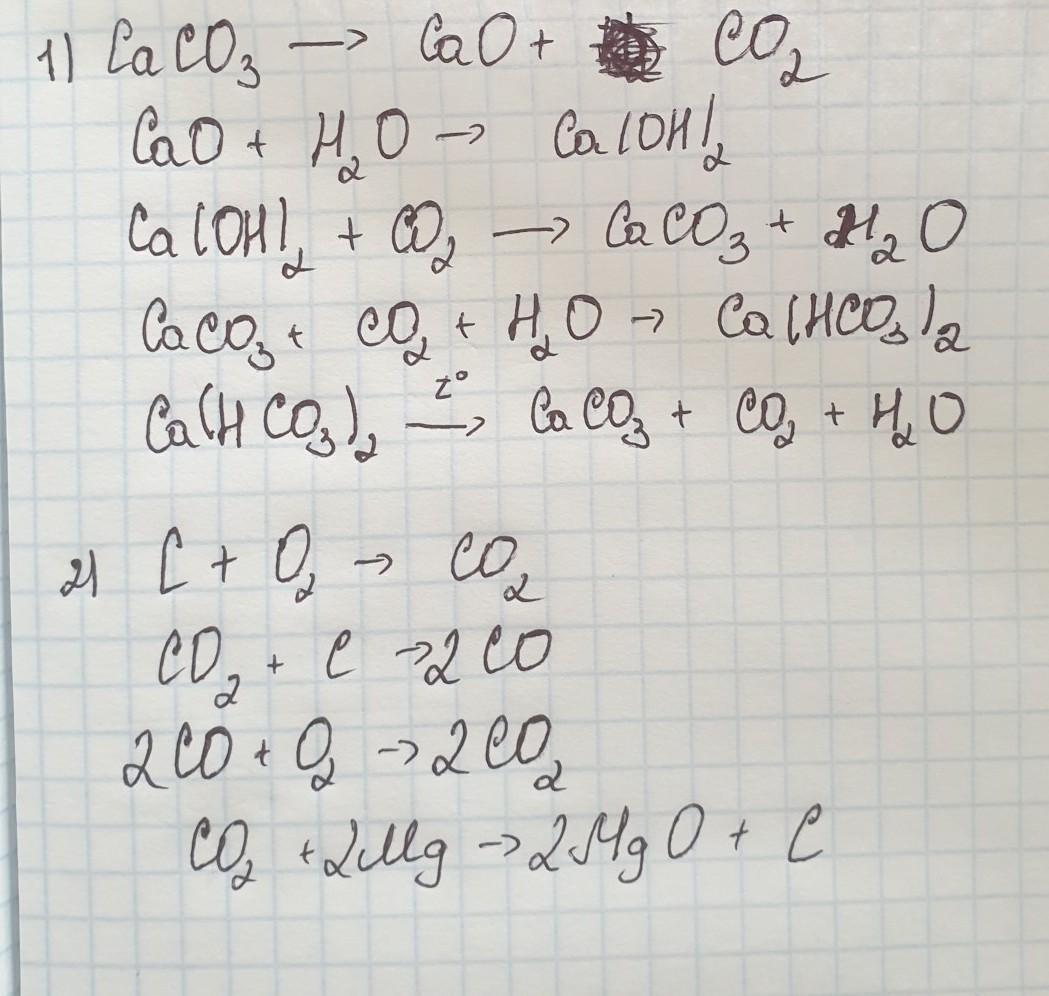 1) CaCO₃ → CaO + CO₂
CaO + H₂O → Ca(OH)₂
Ca(OH)₂ + CO₂ → CaCO₃ + H₂O
CaCO₃ + CO₂ + H₂O → Ca(HCO₃)₂
Ca(HCO₃)₂ →(t°) CaCO₃ + CO₂ + H₂O
2) C + O₂ → CO₂
CO₂ + C → 2CO
2CO + O₂ → 2CO₂
CO₂ + 2Mg → 2MgO + C